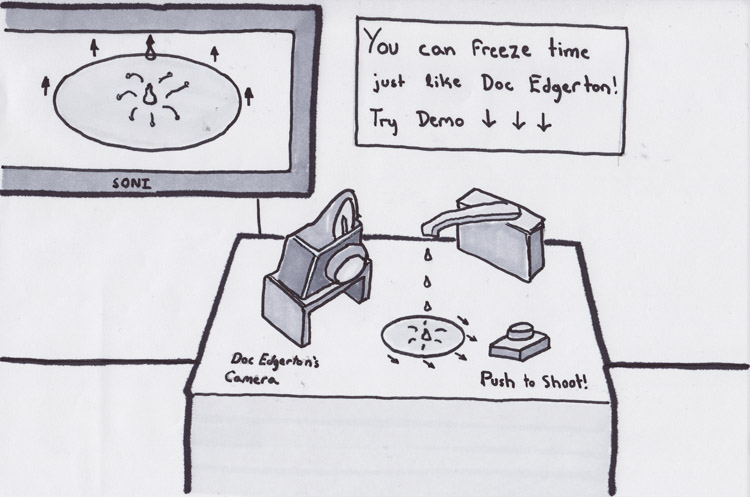 You can freeze time
just like Doc Edgerton!
Try Demo ↓ ↓ ↓
SONI
Doc Edgerton's
Camera
Push to Shoot!